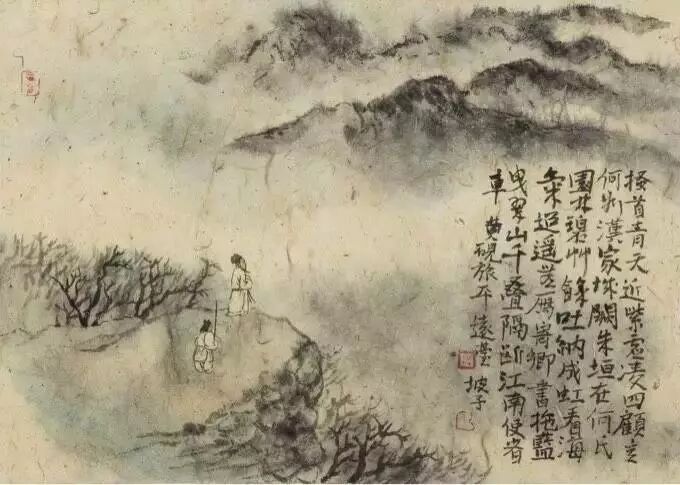 搔首青天近紫虛凌四顧意
何如漢家城闕朱垣在何氏
園林碧艸餘吐納成虹看海
氣迢遥羨雁寄鄉書拖藍
曳翠山千疊隔断江南使者
車 黄硯旅平遠 坡子